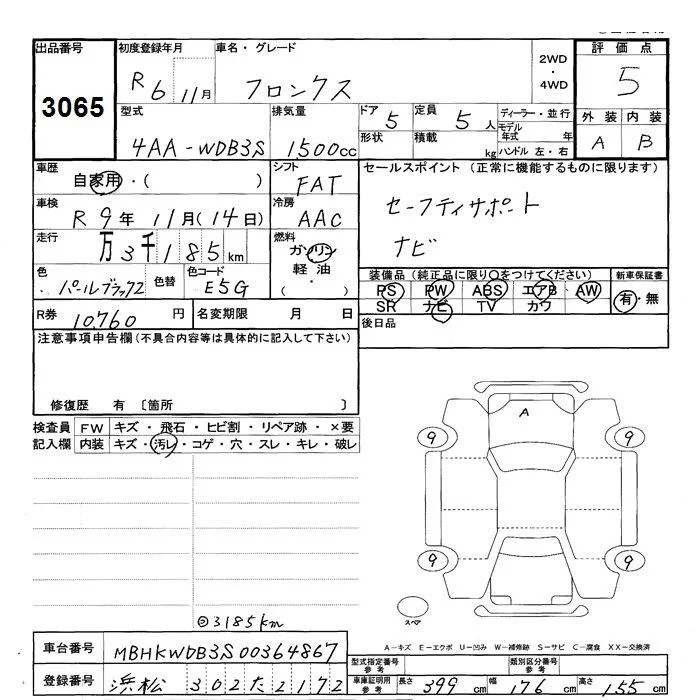 出品番号 初度登録年月 車名・グレード 2WD・4WD 評価点
3065 R6 11月 フロンクス 5
型式 排気量 ドア 5 定員 5人 ディーラー・並行 外装 内装
4AA-WDB3S 1500cc 形状 積載 kg モデル年式 年 A B
ハンドル 左・右
車歴 シフト セールスポイント (正常に機能するものに限ります)
自家用・( ) FAT
車検 冷房 セーフティサポート
R 9年 11月(14日) AAC
走行 燃料 ナビ
万3千185km ガソリン
軽油
( ・ )
色 色替 色コード 装備品(純正品に限り○をつけてください) 新車保証書
パールブラック2 E5G PS PW ABS エアB AW 有・無
SR ナビ TV カワ
R券 10,760 円 名変期限 月 日 後日品
注意事項申告欄(不具合内容等は具体的に記入して下さい)
修復歴 有 〔箇所 〕
検査員 FW キズ・飛石・ヒビ割・リペア跡・×要
記入欄 内装 キズ・汚レ・コゲ・穴・スレ・キレ・破レ
A
9 9
9 9
スペア
◎3185km
A-キズ E-エクボ U-凹み W-補修跡 S-サビ C-腐食 XX-交換済
車台番号 MBHKWDB3S00364867
型式指定番号 参考 類別区分番号 参考
登録番号 浜松 302た2172
車庫証明用 参考 長さ 399cm 幅 176cm 高さ 155cm